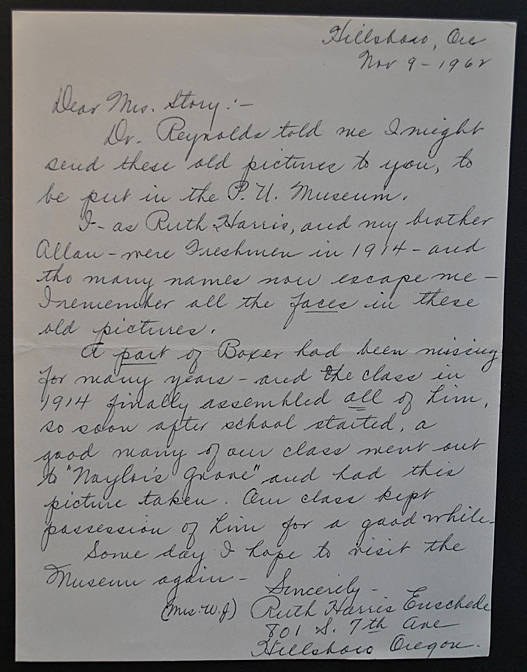 Hillsboro, Ore
Nov 9 - 1962
Dear Mrs. Story:-
Dr. Reynolds told me I might
send these old pictures to you, to
be put in the P. U. Museum.
I - as Ruth Harris, and my brother
Allan - were Freshmen in 1914 - and
tho many names now escape me -
I remember all the faces in these
old pictures.
A part of Boxer had been missing
for many years - and the class in
1914 finally assembled all of him,
so soon after school started, a
good many of our class went out
to "Naylor's Grove" and had this
picture taken. Our class kept
possession of him for a good while.
Some day I hope to visit the
Museum again -
Sincerely -
(Mrs. W.J.) Ruth Harris Enschede
801 S. 7th Ave
Hillsboro Oregon.